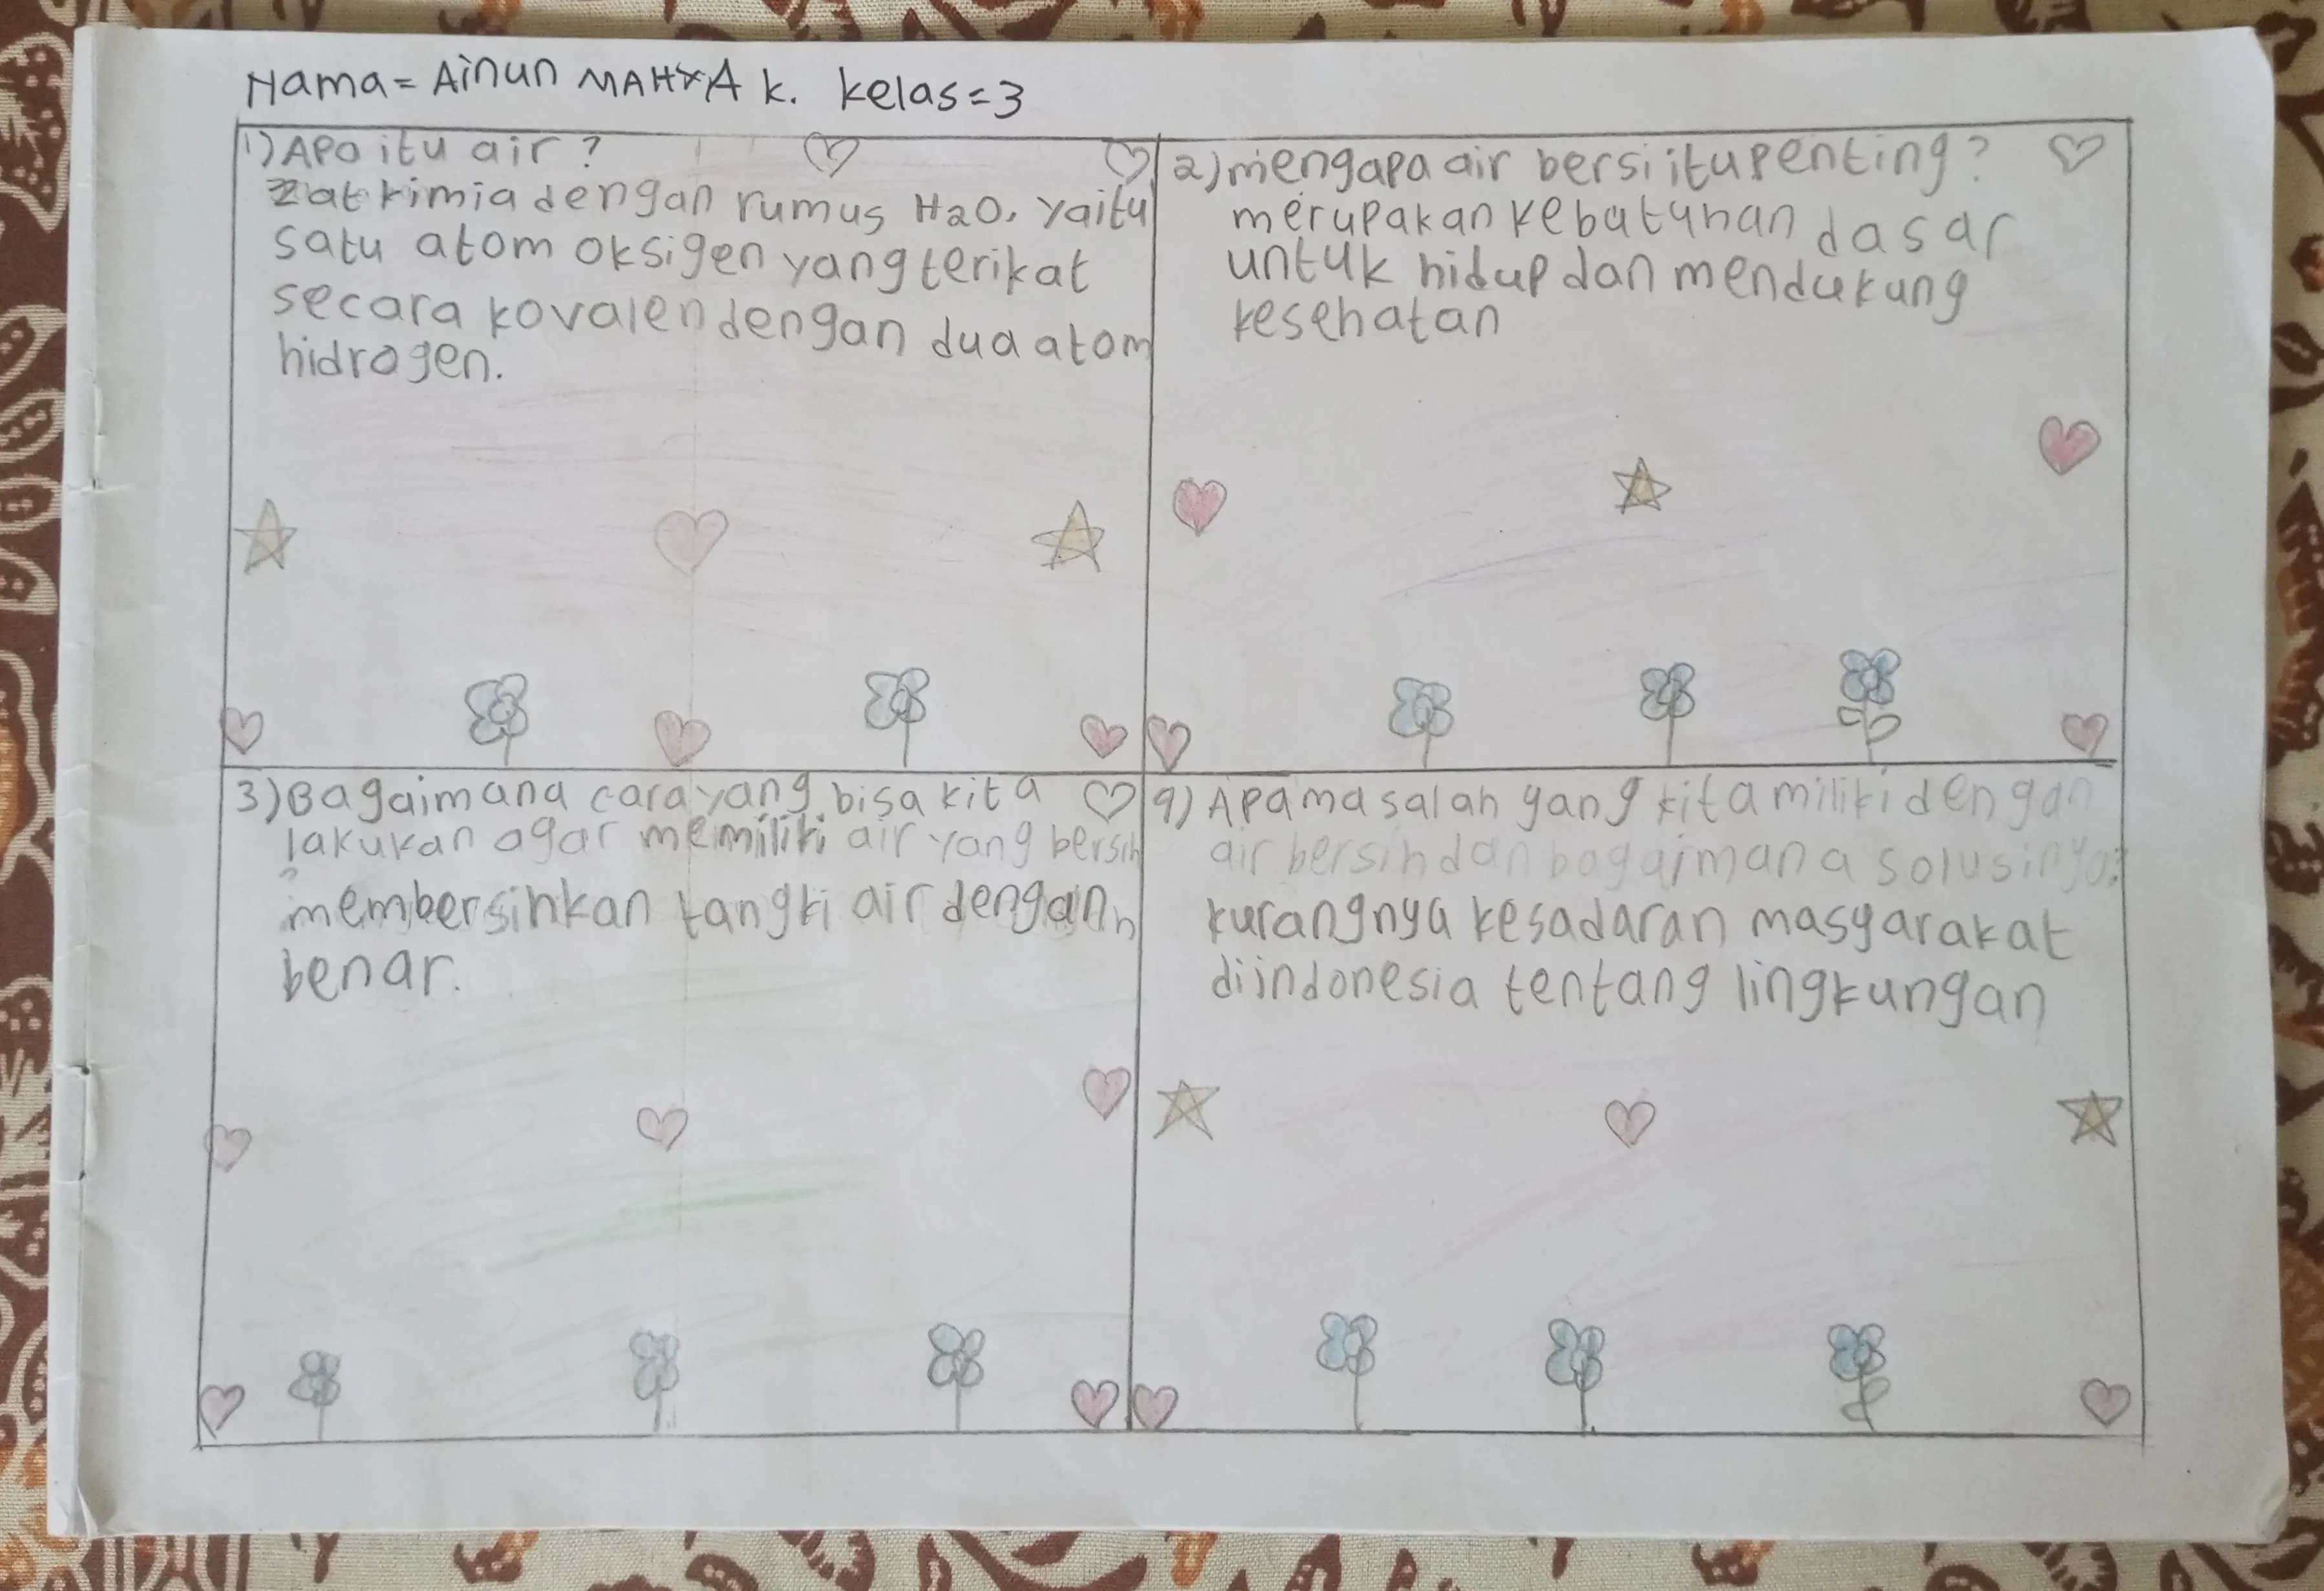 Nama = Ainun MAHYA K. kelas = 3
1) APa itu air ?
zat kimia dengan rumus H2O, yaitu
satu atom oksigen yang terikat
secara kovalen dengan dua atom
hidrogen.
2) mengapa air bersi itu penting ?
merupakan kebutuhan dasar
untuk hidup dan mendukung
kesehatan
3) Bagaimana cara yang bisa kita
lakukan agar memiliki air yang bersih
?
membersihkan tangki air dengan
benar.
4) Apa masalah yang kita miliki dengan
air bersih dan bagaimana solusinya?
kurangnya kesadaran masyarakat
diindonesia tentang lingkungan